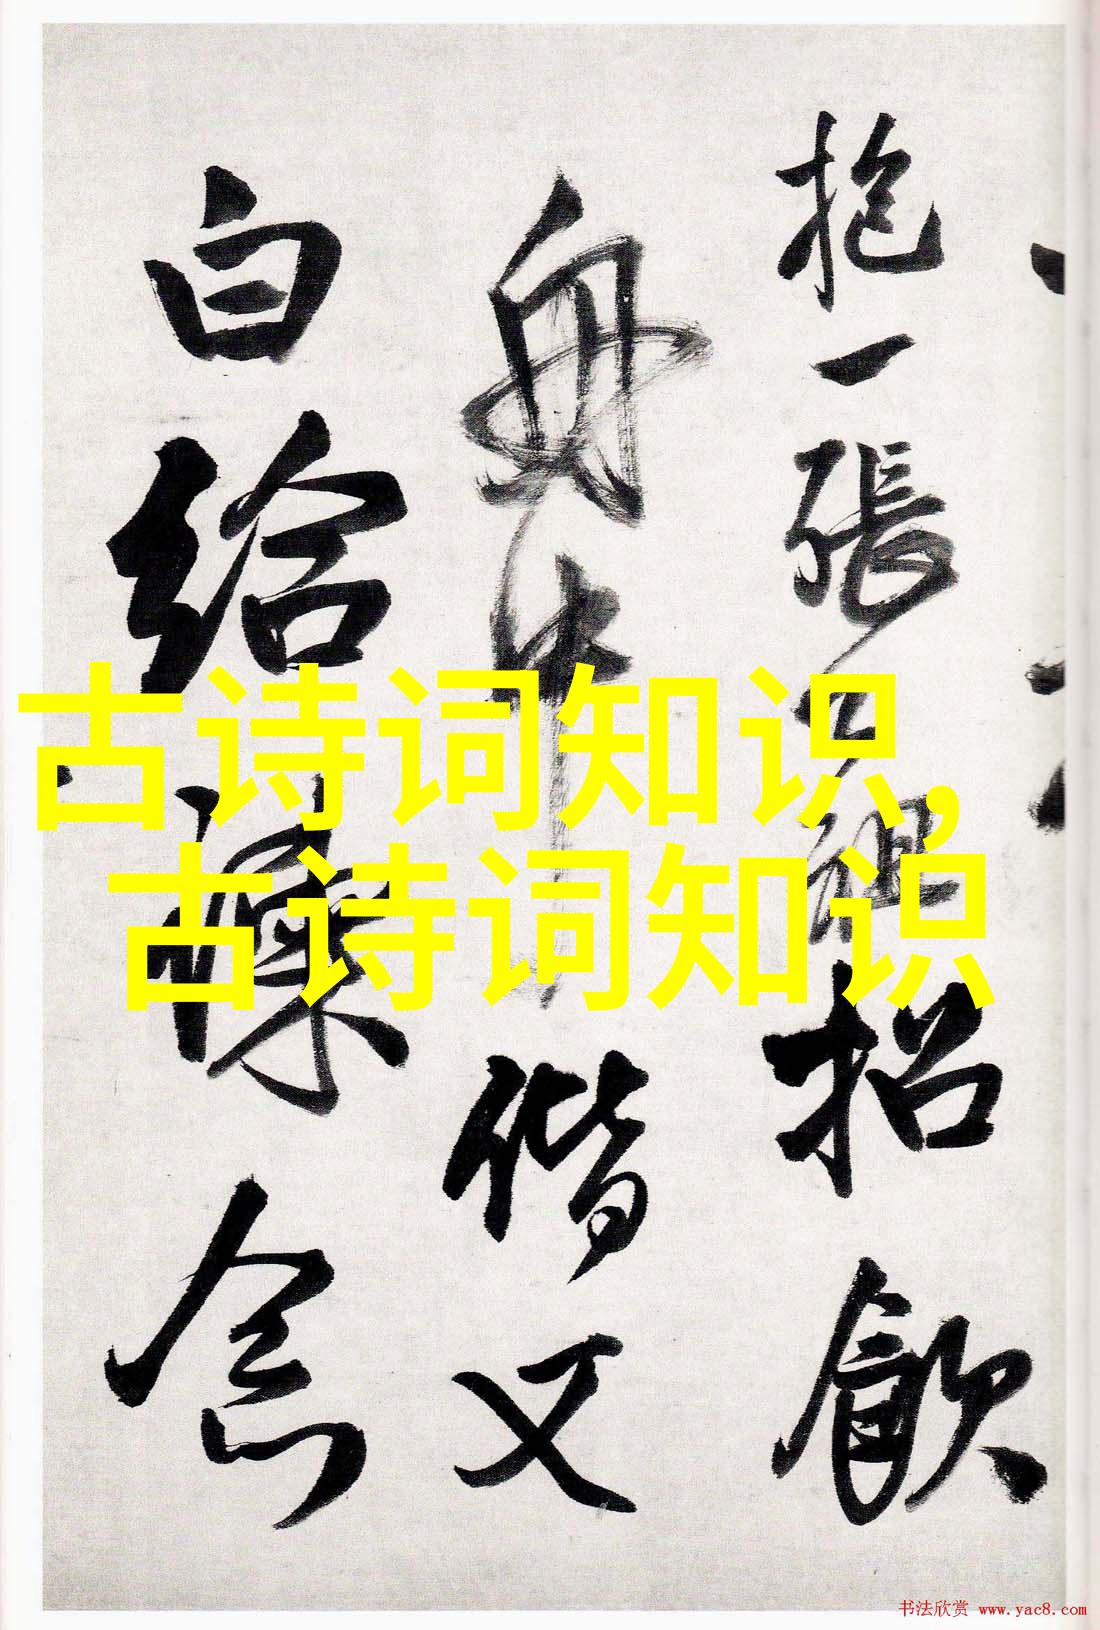 抱一張
招飲
舟中
偕又
白給諫
念
古诗词知识,
古诗词知识
书法欣赏 www.yac8.com